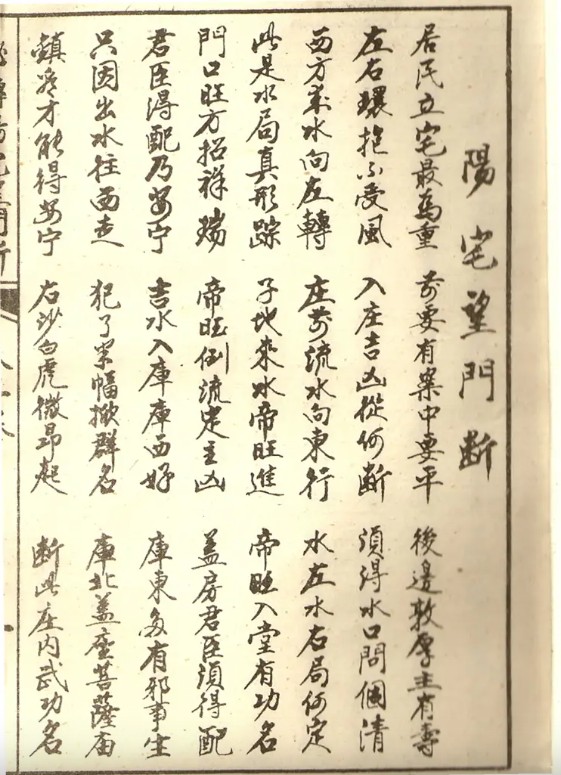 陽宅望門断
居民立宅最爲重 前要有案中要平 後邊敦厚主有壽
左右環抱不受風 入庄吉凶從何断 須得水口問個清
西方来水向左轉 庄前流水向東行 水左水右局何定
此是水局真形踪 子地来水帝旺進 帝旺入堂有功名
門口旺方招祥瑞 帝旺倒流定主凶 盖房君臣須得配
君臣得配乃安宁 吉水入庫庫西好 庫東多有邪事生
只因出水往西走 犯了 群名 庫北盖座菩薩庙
鎮庄才能得安宁 右沙白虎微昂起 断此庄内武功名